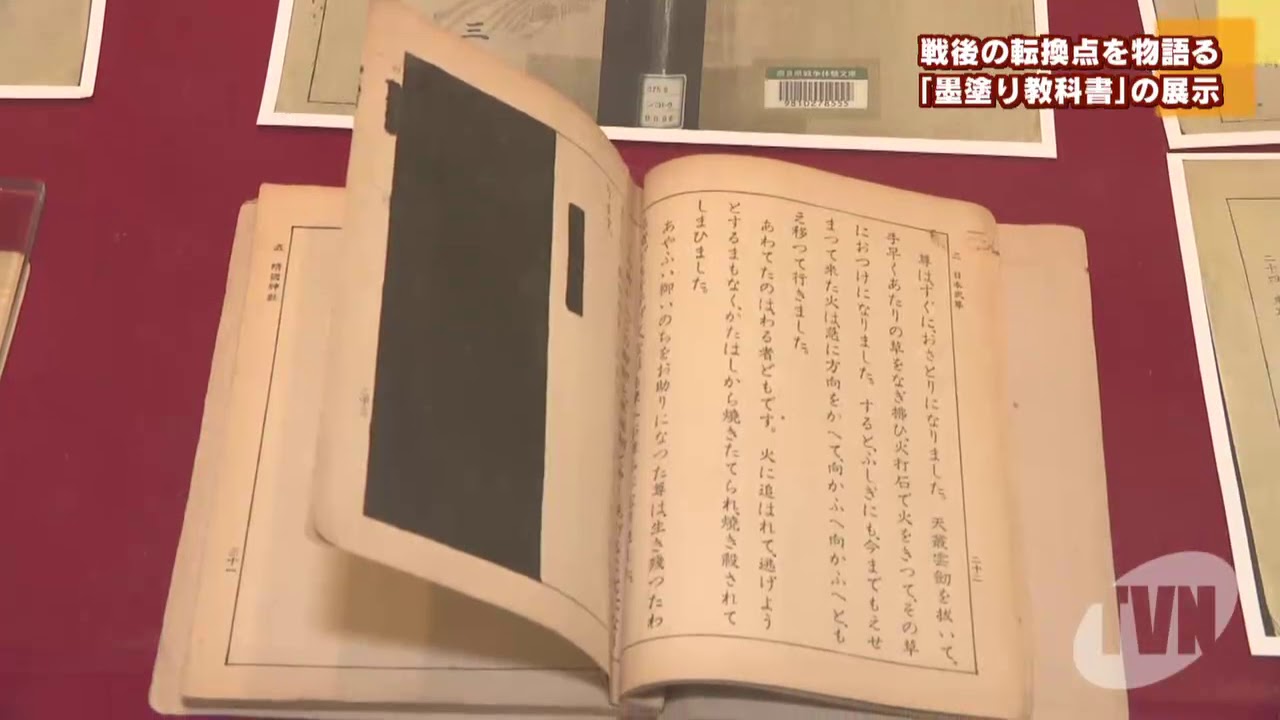 戦後の転換点を物語る
「墨塗り教科書」の展示
三
奈良県戦争体験文庫
9810278555
二 日本武尊
尊はすぐに、おさとりになりました。天叢雲劒を拔いて、
手早くあたりの草をなぎ拂ひ、火打石で火をきつて、その草
におつけになりました。すると、ふしぎにも、今までもえせ
まつて來た火は、急に方向をかへて、向かふへ向かふへと、も
え移つて行きました。
あわてたのは、わる者どもです。火に追はれて、逃げよう
とするまもなく、かたはしから燒きたてられ、燒き殺されて
しまひました。
あやふい御いのちをお助りになつた尊は、生き殘つたわ
二十二
靖國神社
三十一
TVN